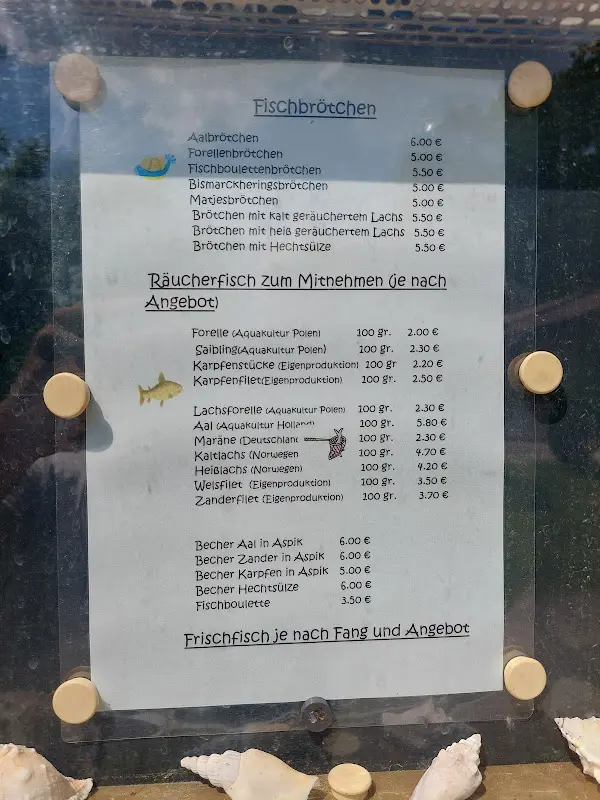 Fischbrötchen
Aalbrötchen 6.00 €
Forellenbrötchen 5.00 €
Fischboulettenbrötchen 5.50 €
Bismarckheringsbrötchen 5.00 €
Matjesbrötchen 5.00 €
Brötchen mit kalt geräuchertem Lachs 5.50 €
Brötchen mit heiß geräuchertem Lachs 5.50 €
Brötchen mit Hechtsülze 5.50 €
Räucherfisch zum Mitnehmen (je nach
Angebot)
Forelle (Aquakultur Polen) 100 gr. 2.00 €
Saibling(Aquakultur Polen) 100 gr. 2.30 €
Karpfenstücke (Eigenproduktion) 100 gr 2.20 €
Karpfenfilet(Eigenproduktion) 100 gr. 2.50 €
Lachsforelle (Aquakultur Polen) 100 gr. 2.30 €
Aal (Aquakultur Holland) 100 gr. 5.80 €
Maräne (Deutschland 100 gr. 2.30 €
Kaltlachs (Norwegen 100 gr. 4.70 €
Heißlachs (Norwegen) 100 gr. 4.20 €
Welsfilet (Eigenproduktion) 100 gr. 3.50 €
Zanderfilet (Eigenproduktion) 100 gr. 3.70 €
Becher Aal in Aspik 6.00 €
Becher Zander in Aspik 6.00 €
Becher Karpfen in Aspik 5.00 €
Becher Hechtsülze 6.00 €
Fischboulette 3.50 €
Frischfisch je nach Fang und Angebot